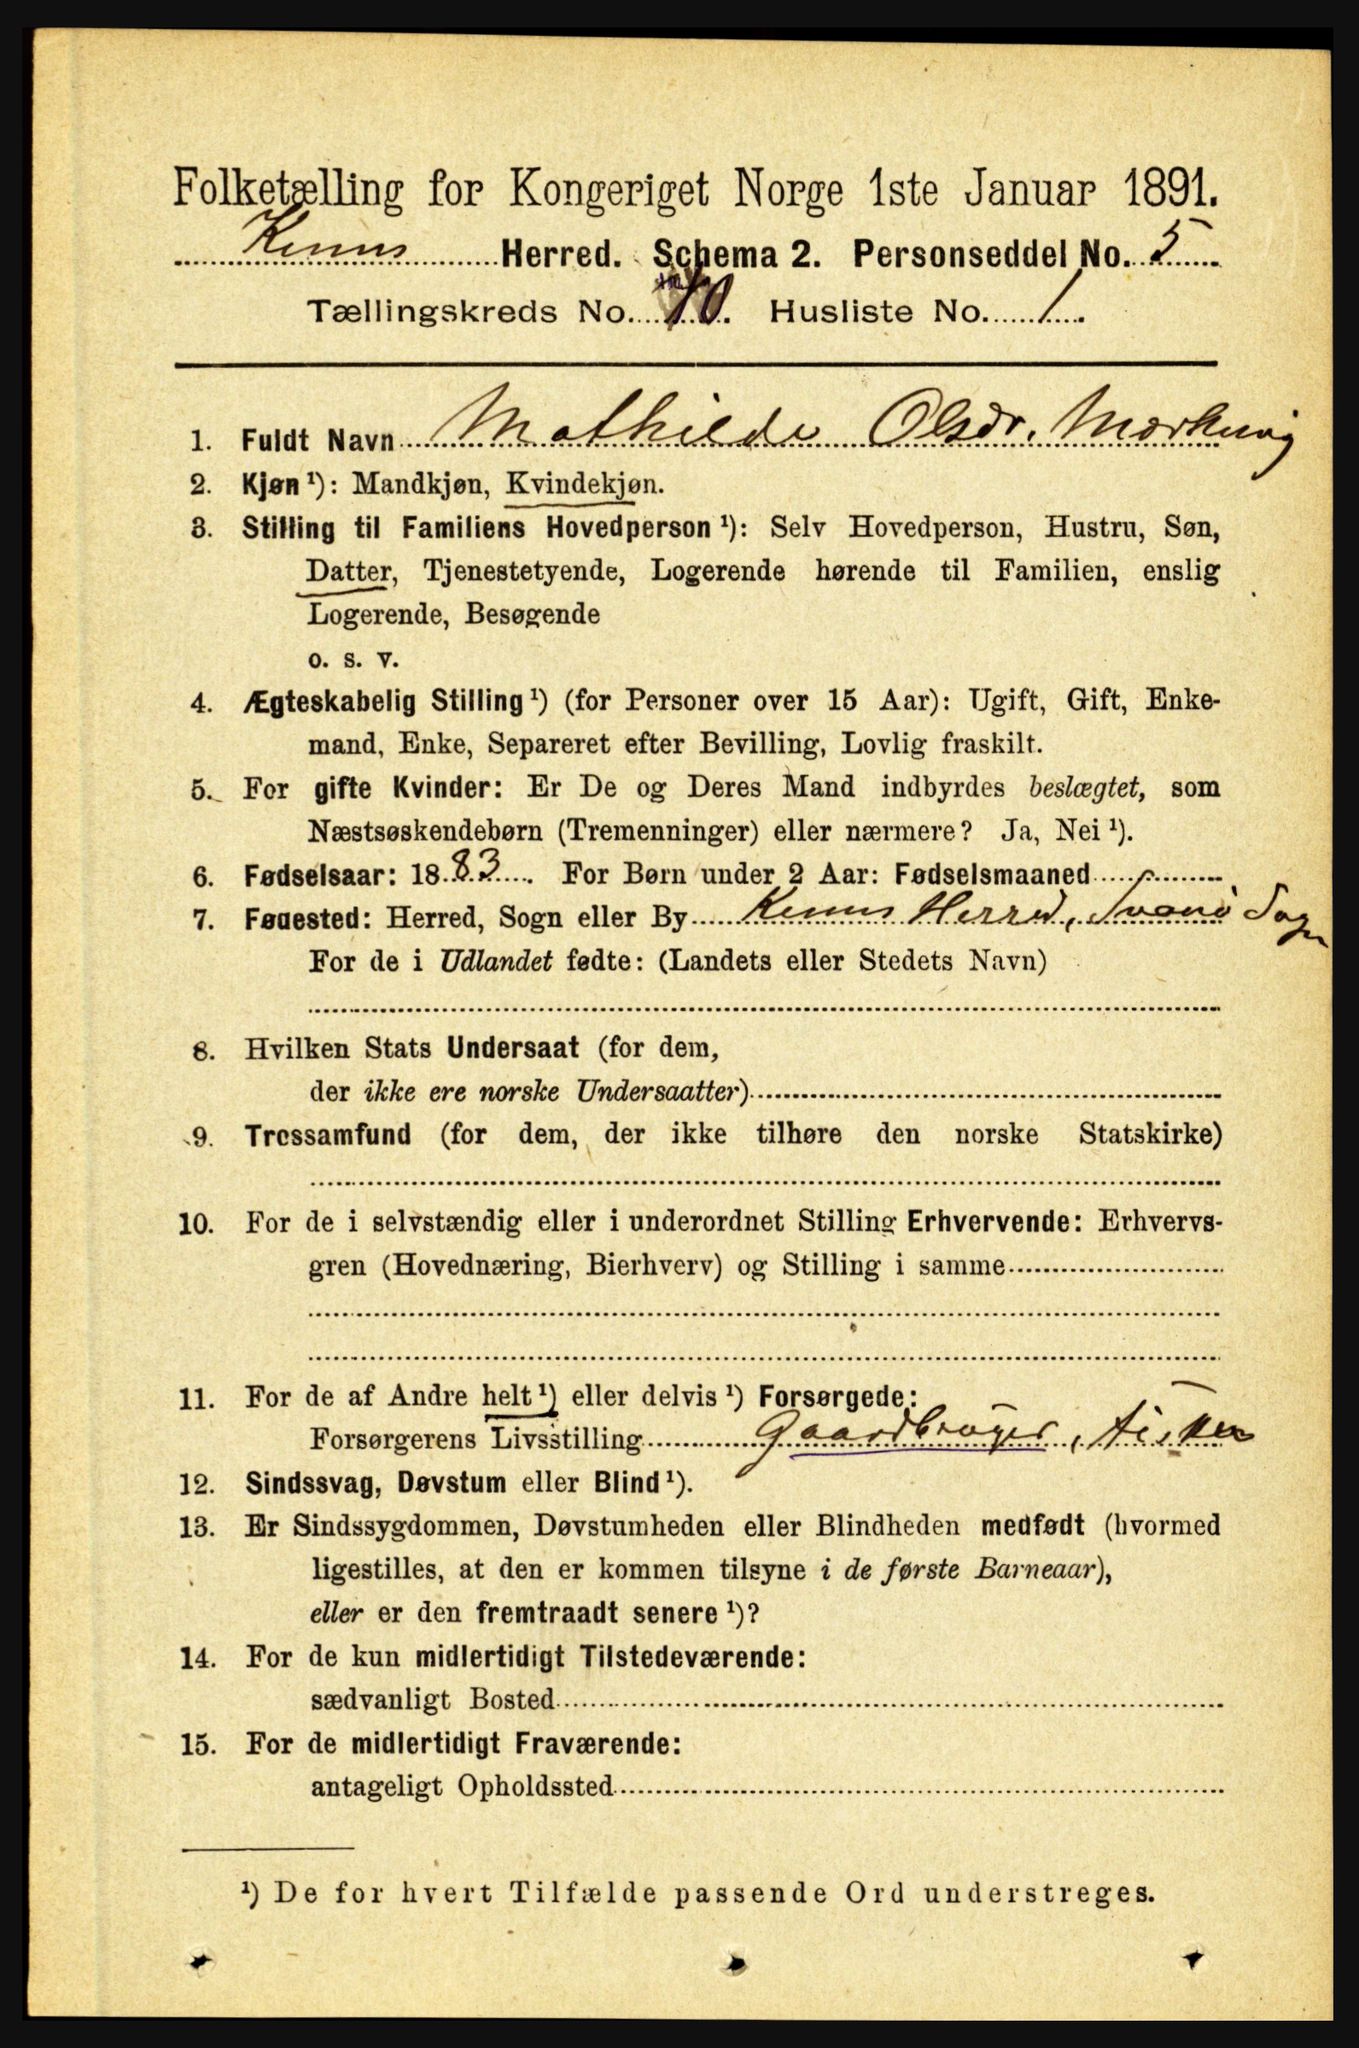 Folketælling for Kongeriget Norge 1ste Januar 1891.
Kinns Herred. Schema 2. Personseddel No. 5
Tællingskreds No. 10. Husliste No. 1.
1. Fuldt Navn Mathilde Olsdr. Markevig
2. Kjøn ¹): Mandkjøn, Kvindekjøn.
3. Stilling til Familiens Hovedperson ¹): Selv Hovedperson, Hustru, Søn,
Datter, Tjenestetyende, Logerende hørende til Familien, enslig
Logerende, Besøgende
o. s. v.
4. Ægteskabelig Stilling ¹) (for Personer over 15 Aar): Ugift, Gift, Enke-
mand, Enke, Separeret efter Bevilling, Lovlig fraskilt.
5. For gifte Kvinder: Er De og Deres Mand indbyrdes beslægtet, som
Næstsøskendebørn (Tremenninger) eller nærmere? Ja, Nei ¹).
6. Fødselsaar: 1883. For Børn under 2 Aar: Fødselsmaaned
7. Fødested: Herred, Sogn eller By Kinns Herred, Svanø Sogn
For de i Udlandet fødte: (Landets eller Stedets Navn)
8. Hvilken Stats Undersaat (for dem,
der ikke ere norske Undersaatter)
9. Trossamfund (for dem, der ikke tilhøre den norske Statskirke)
10. For de i selvstændig eller i underordnet Stilling Erhvervende: Erhvervs-
gren (Hovednæring, Bierhverv) og Stilling i samme
11. For de af Andre helt ¹) eller delvis ¹) Forsørgede:
Forsørgerens Livsstilling Gaardbruger, Fisker
12. Sindssvag, Døvstum eller Blind ¹).
13. Er Sindssygdommen, Døvstumheden eller Blindheden medfødt (hvormed
ligestilles, at den er kommen tilsyne i de første Barneaar),
eller er den fremtraadt senere ¹)?
14. For de kun midlertidigt Tilstedeværende:
sædvanligt Bosted
15. For de midlertidigt Fraværende:
antageligt Opholdssted
¹) De for hvert Tilfælde passende Ord understreges.